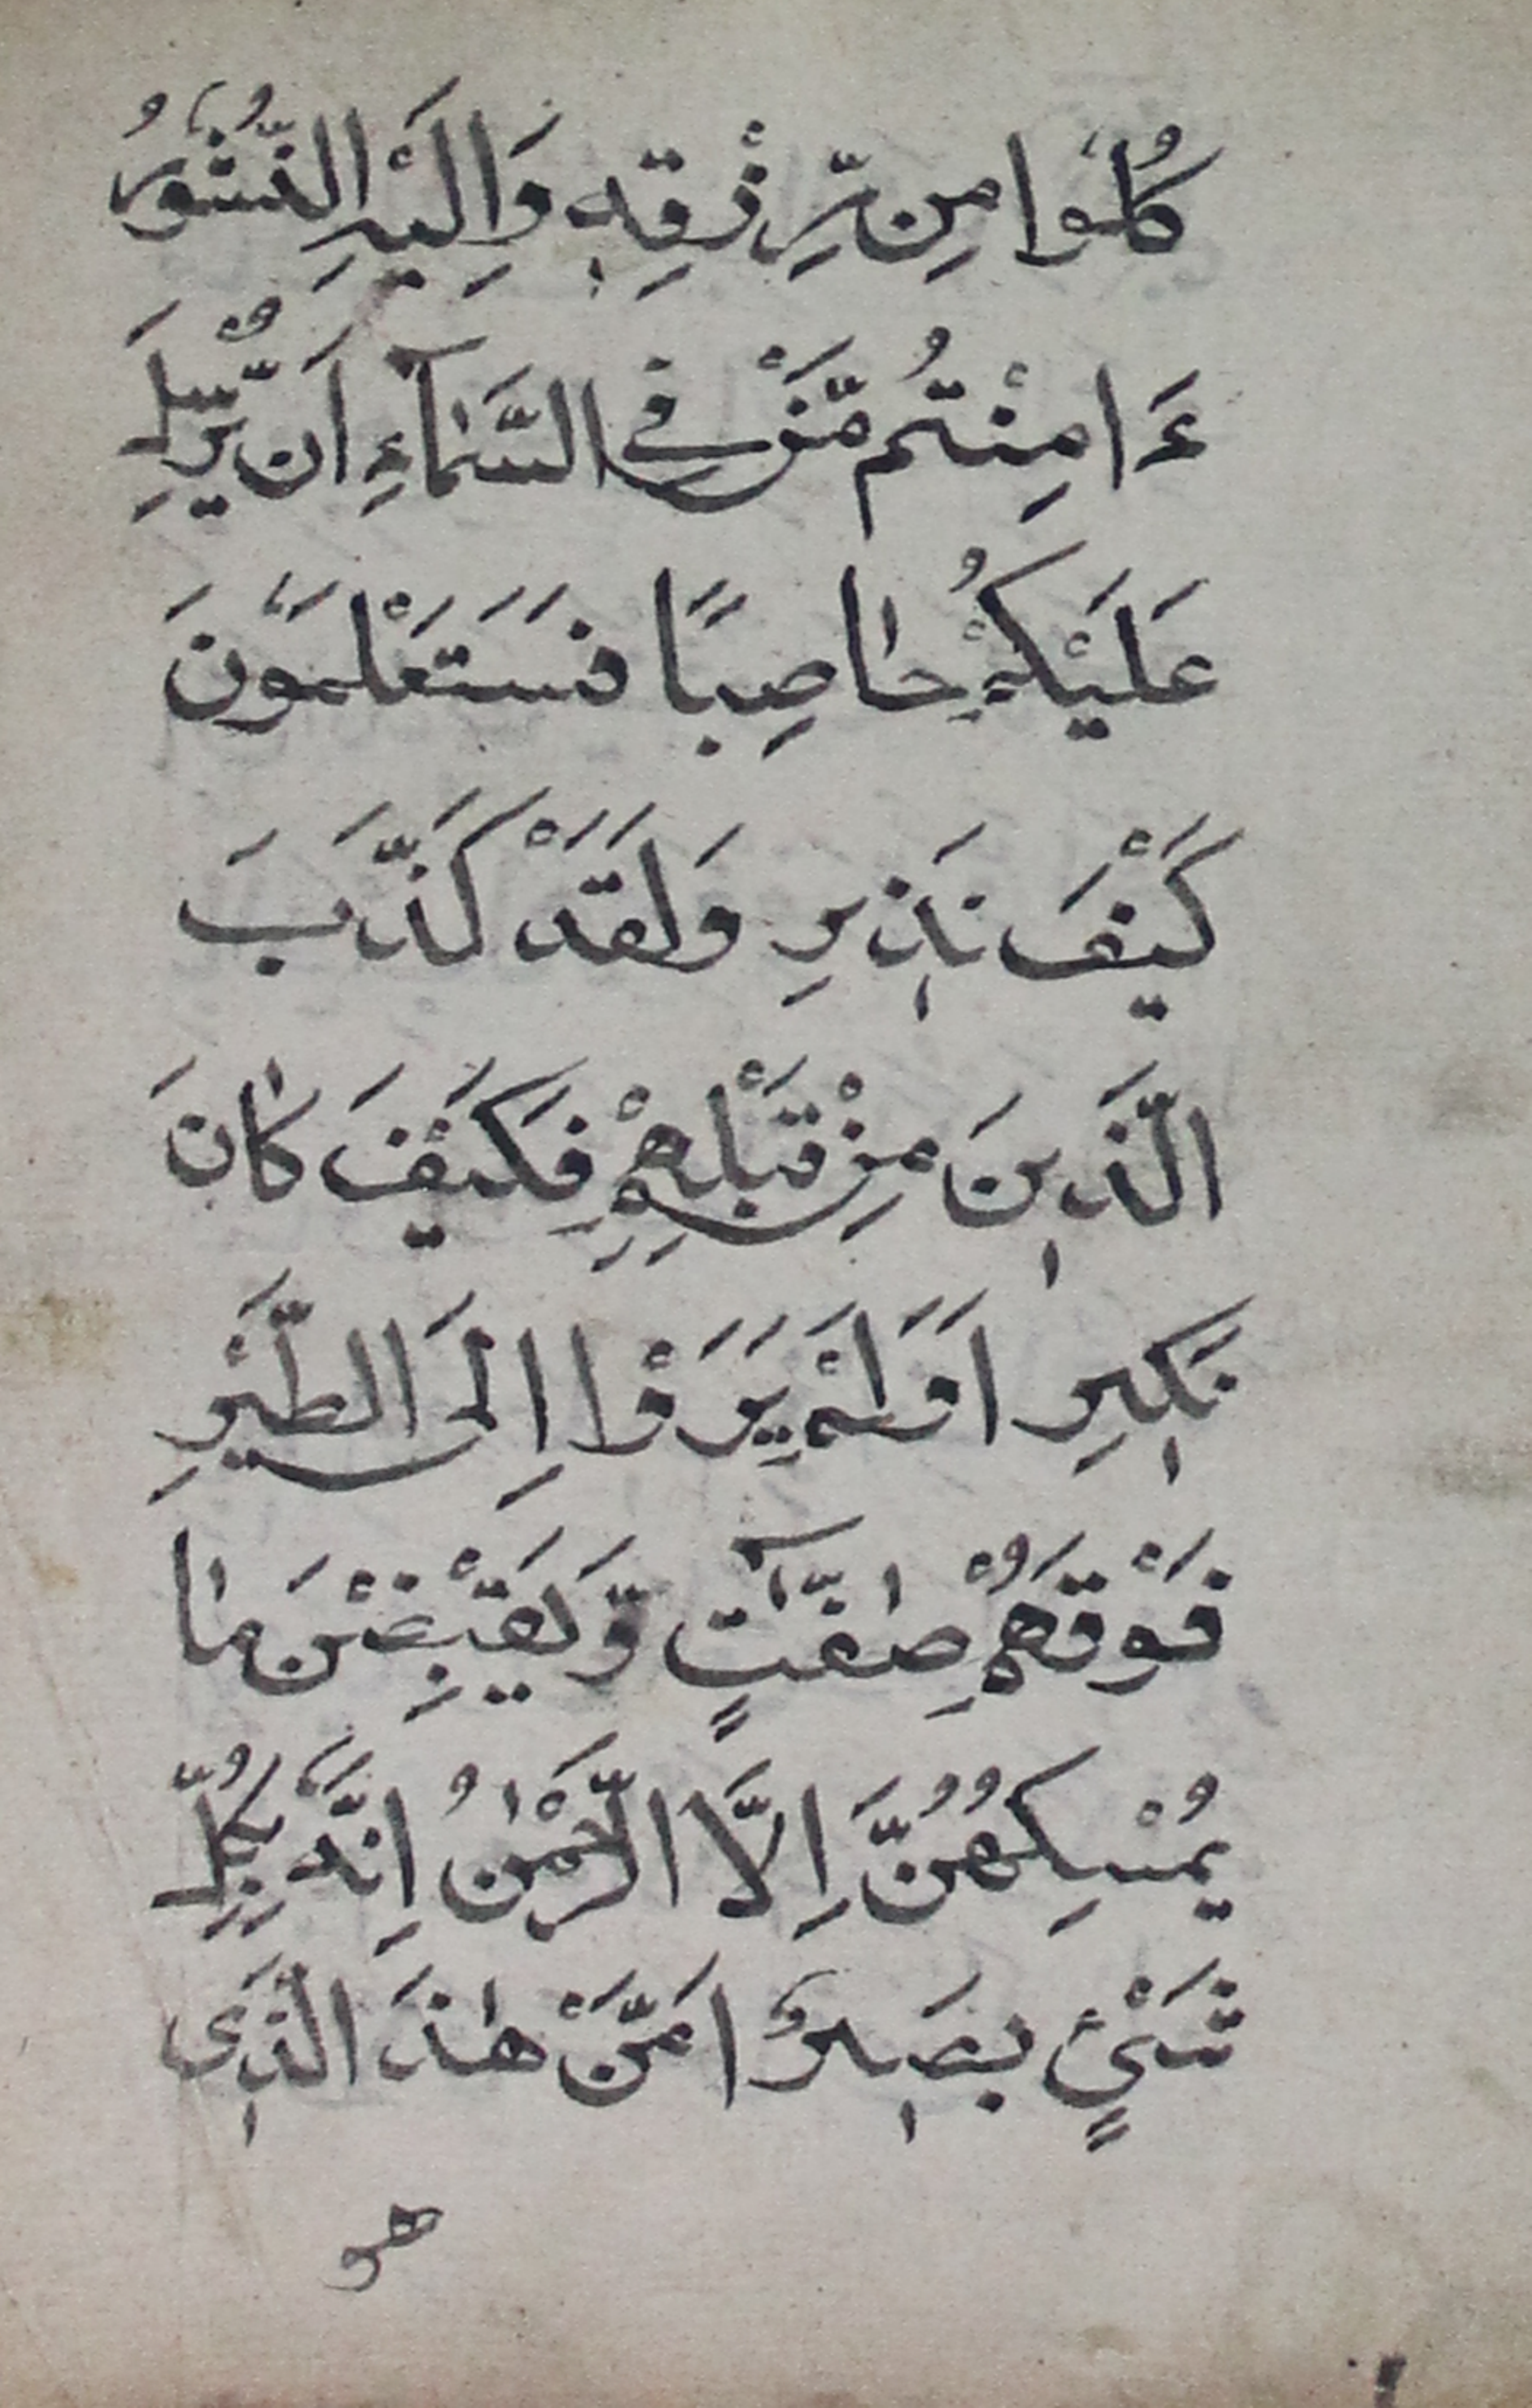 كُلُوا مِن رِّزْقِهٖ وَاِلَيْهِ النُّشُورُ
ءَامِنْتُم مَّنْ فِي السَّمَآءِ اَن يُّرْسِلَ
عَلَيْكُمْ حَاصِبًا فَسَتَعْلَمُونَ
كَيْفَ نَذِيرِ وَلَقَدْ كَذَّبَ
الَّذِينَ مِنْ قَبْلِهِمْ فَكَيْفَ كَانَ
نَكِيرِ اَوَلَمْ يَرَوْا اِلَى الطَّيْرِ
فَوْقَهُمْ صٰٓفّٰتٍ وَّيَقْبِضْنَ مَا
يُمْسِكُهُنَّ اِلَّا الرَّحْمٰنُ اِنَّهُ بِكُلِّ
شَيْئٍ بَصِيرٌ اَمَّنْ هٰذَ الَّذِى
هو